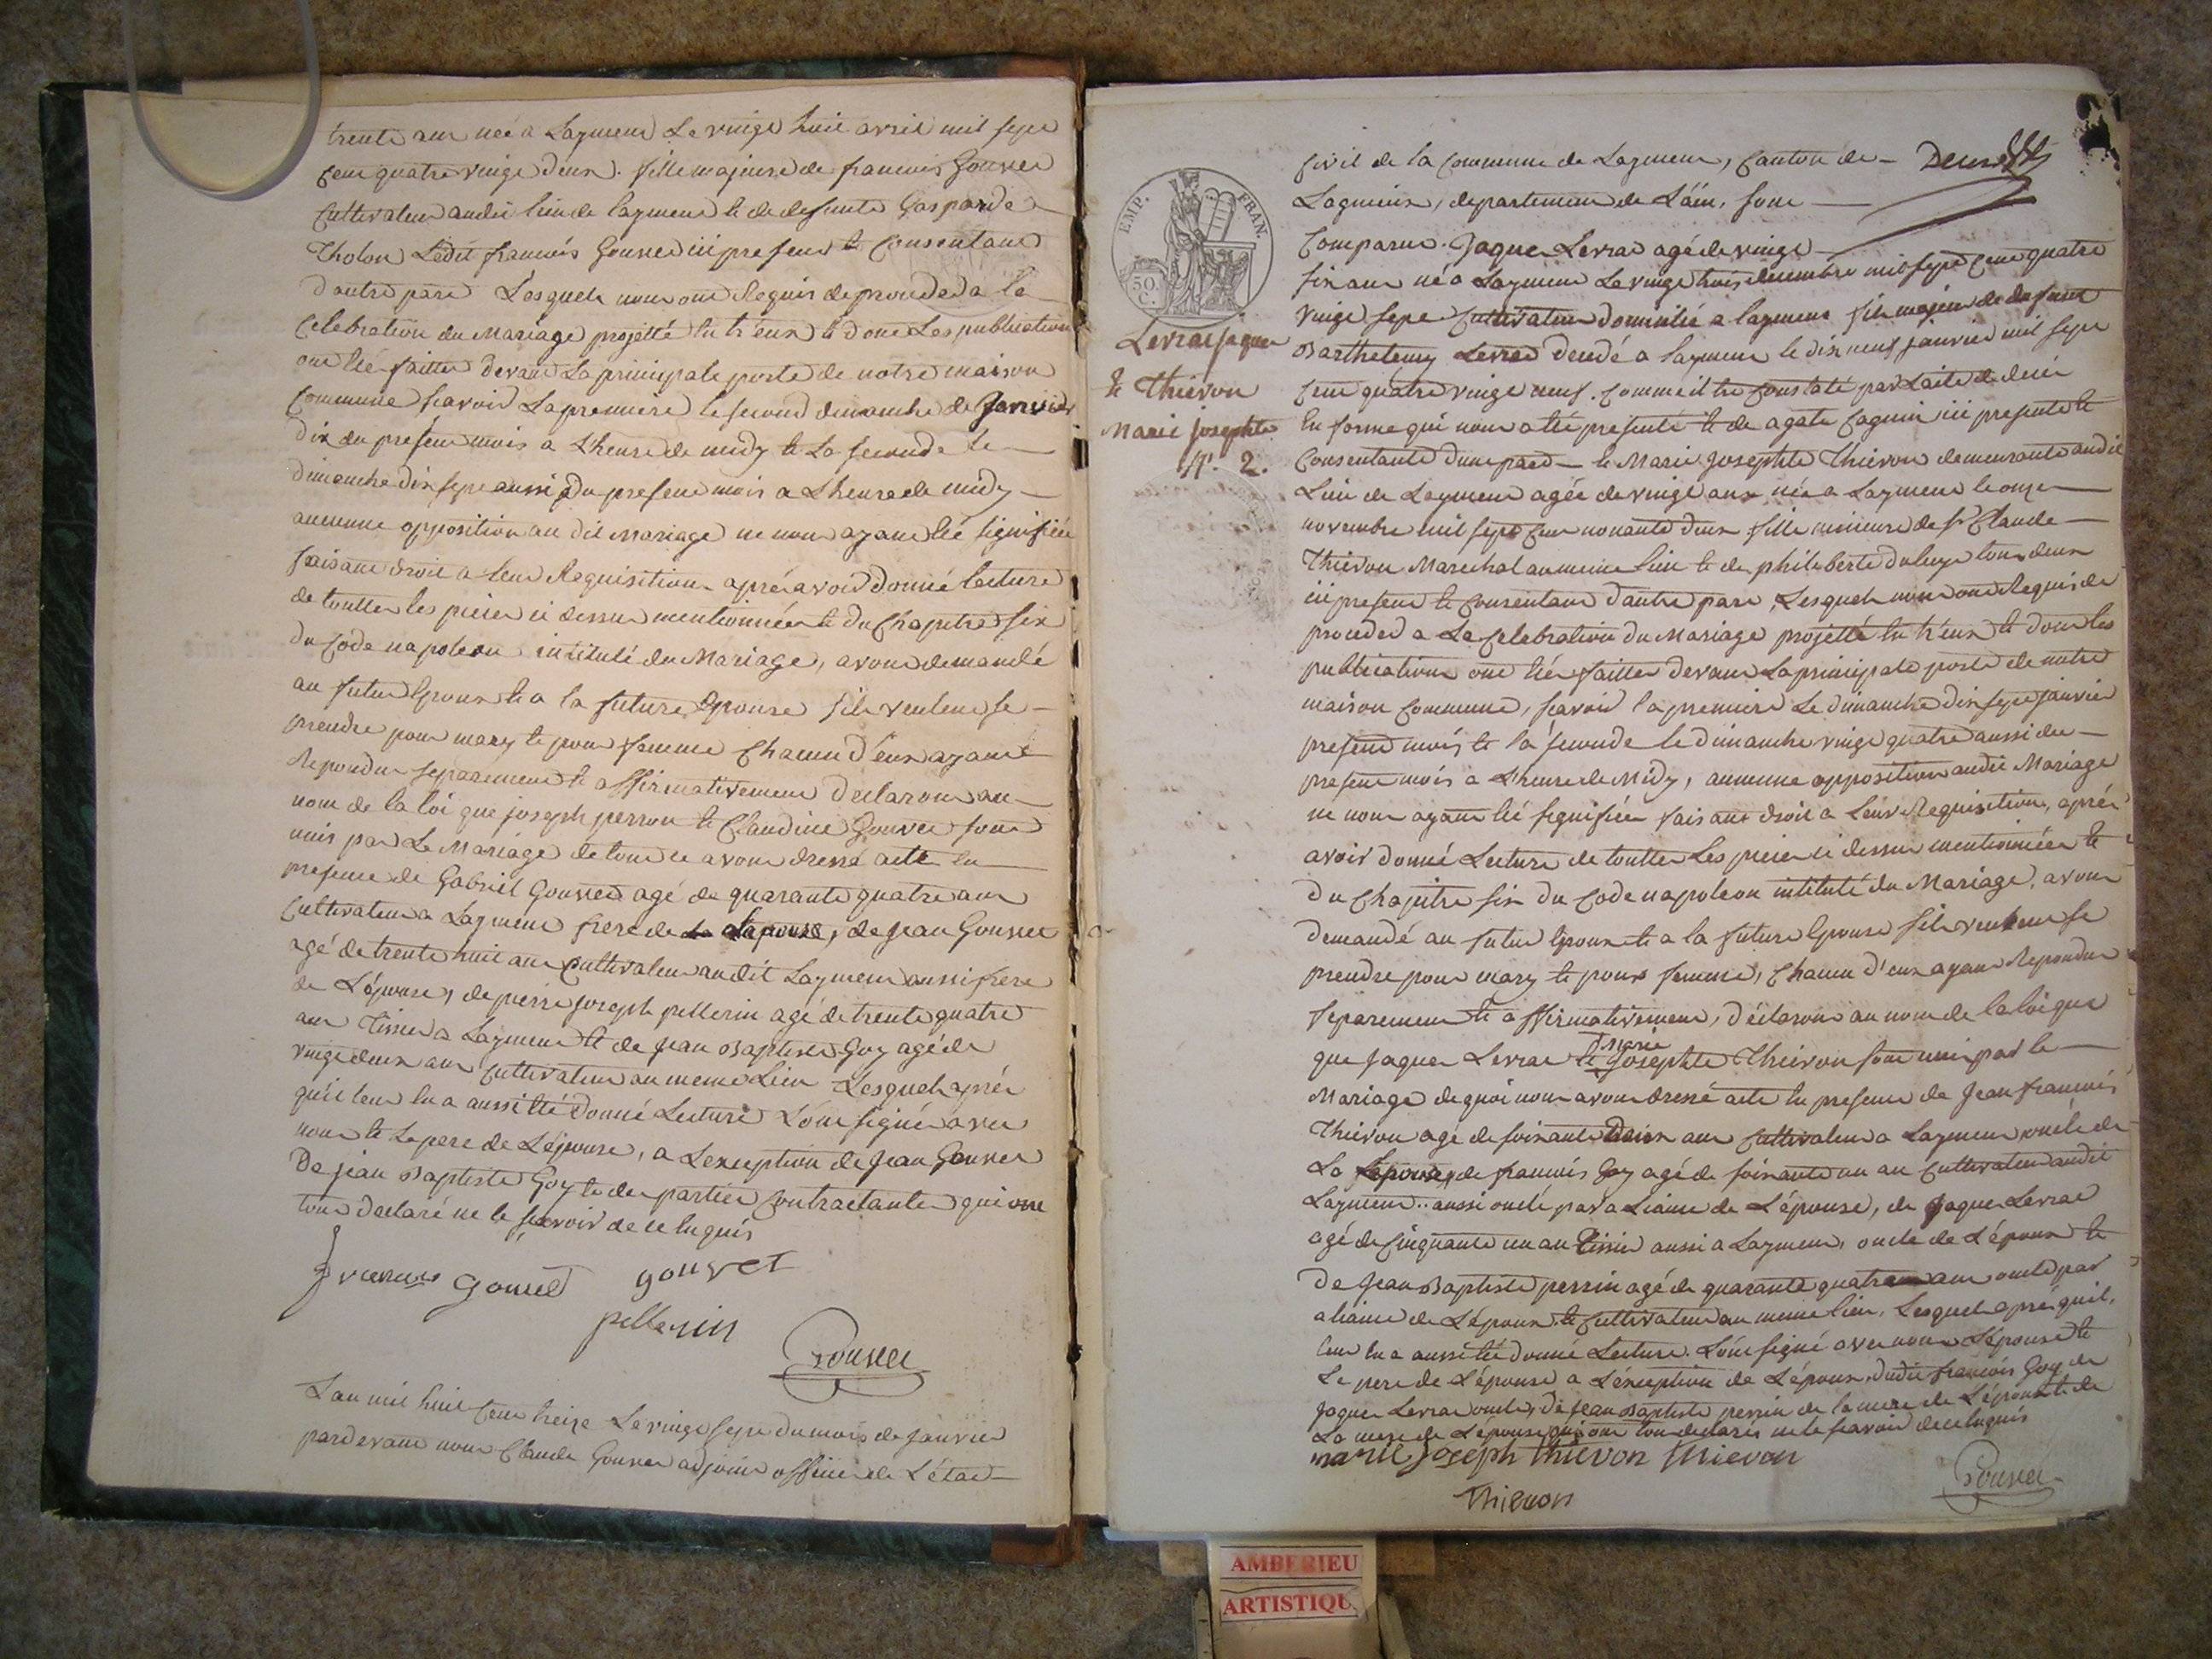 trente ans née a Lagnieu Le vingt huit avril mil sept
cent quatre vingt deux. fille majeure de francois Gouvet
Cultivateur audit lieu de lagnieu et de defunte Gasparde
Tholon Ledit francois Gouvet ici present et Consentant
d'autre part Lesquels nous ont Requis de proceder a la
Celebration du Mariage projetté entr'eux et dont Les publications
ont été faittes devant La principale porte de notre maison
Commune scavoir La premiere le second dimanche de Janvier
dix du present mois a L'heure de midy et La seconde le
dimanche dix sept aussi du present mois a L'heure de midy
aucunne opposition au dit Mariage ne nous ayant été signifiée
faisant droit a leur Requisition après avoir donné lecture
de touttes les pieces ci dessus mentionnées et du Chapitre six
du Code napoleon intitulé du Mariage, avons demandé
au futur Epoux et a la future Epouse s'ils veulent se
prendre pour mary et pour femme Chacun d'eux ayant
Repondu separement et affirmativement declarons au
nom de la loi que joseph perron et Claudine Gouvet sont
unis par Le Mariage de tout ce avons dressé acte en
presence de Gabriel Gouvet agé de quarante quatre ans
Cultivateur a Lagnieu frere de L'epouse, de Jean Gouvet
agé de trente huit ans Cultivateur audit Lagnieu aussi frere
de L'épouse, de pierre joseph pellerin agé de trente quatre
ans Tissier a Lagnieu et de Jean Baptiste Goy agé de
vingt deux ans Cultivateur au meme Lieu Lesquels après
qu'il leur en a aussi été donné Lecture L'ont signé avec
nous et Le pere de L'épouse, a L'exception de Jean Gouvet
De jean Baptiste Goy et des parties Contractantes qui ont
tous declaré ne le scavoir de ce enquis
francois Gouvet gouvet
pellerin
Gouvet
L'an mil huit Cent treize Le vingt sept du mois de Janvier
pardevant nous Claude Gouvet adjoint officier de L'état
Deux
Civil de la Commune de Lagnieu, Canton de
Lagnieu, departement de L'ain, sont
Comparus. Jaques Levrat agé de vingt
six ans né a Lagnieu Le vingt trois decembre mil sept Cent quatre
vingt sept Cultivateur domicilié a lagnieu fils majeur de defunt
Barthelemy Levrat decedé a lagnieu le dix neuf janvier mil sept
Cent quatre vingt neuf. Comme il est Constaté par L'acte de decès
En forme qui nous a été presenté et de agate Cagnin ici presente et
Consentante d'une part et Marie Josephte Thievon demeurante audit
Lieu de Lagnieu agée de vingt ans née a Lagnieu le onze
novembre mil sept Cent nonante deux fille mineure de sr Claude
Thievon Marechal au meme lieu et de philiberte tous deux
ici present et Consentant d'autre part, Lesquels nous ont Requis de
proceder a La Celebration du Mariage projetté entr'eux et dont les
publications ont été faittes devant La principale porte de notre
maison Commune, scavoir la premiere Le dimanche dix sept janvier
present mois et la seconde le dimanche vingt quatre aussi du
present mois a L'heure de Midy, aucunne opposition audit Mariage
ne nous ayant été signifiée faisant droit a Leur Requisition, après
avoir donné Lecture de touttes Les pieces ci dessus mentionnées et
du Chapitre six du Code napoleon intitulé du Mariage, avons
demandé au futur Epoux et a la future Epouse s'ils veulent se
prendre pour mary et pour femme, Chacun d'eux ayant Repondu
separement et affirmativement, déclarons au nom de la loi que
que Jaques Levrat et Marie Josephte Thievon sont unis par le
Mariage de quoi nous avons dressé acte En presence de Jean francois
Thievon agé de soixante ans Cultivateur a Lagnieu oncle de
La L'epouse, de francois Goy agé de soixante un an Cultivateur audit
Lagnieu.. aussi oncle par aliance de L'épouse, de Jaques Levrat
agé de Cinquante un an Tissier aussi a Lagnieu, oncle de L'époux et
De Jean Baptiste perrin agé de quarante quatre ans oncle par
aliance de L'époux et Cultivateur au meme lieu, Lesquels après quil
leur En a aussi été donné Lecture. L'ont signé avec nous L'épouse et
Le pere de L'épouse a L'exception de L'époux, dudit francois Goy de
Jaques Levrat oncle, De Jean Baptiste perrin de la mere de L'époux et de
La mere de L'épouse qui ont tous declarés ne le scavoir de ce enquis
marie joseph thievon thievon
Thievon
Gouvet
EMP. FRAN.
50 C.
Levrat jaques
et Thievon
Marie josephte
N°. 2.
AMBERIEU
ARTISTIQU